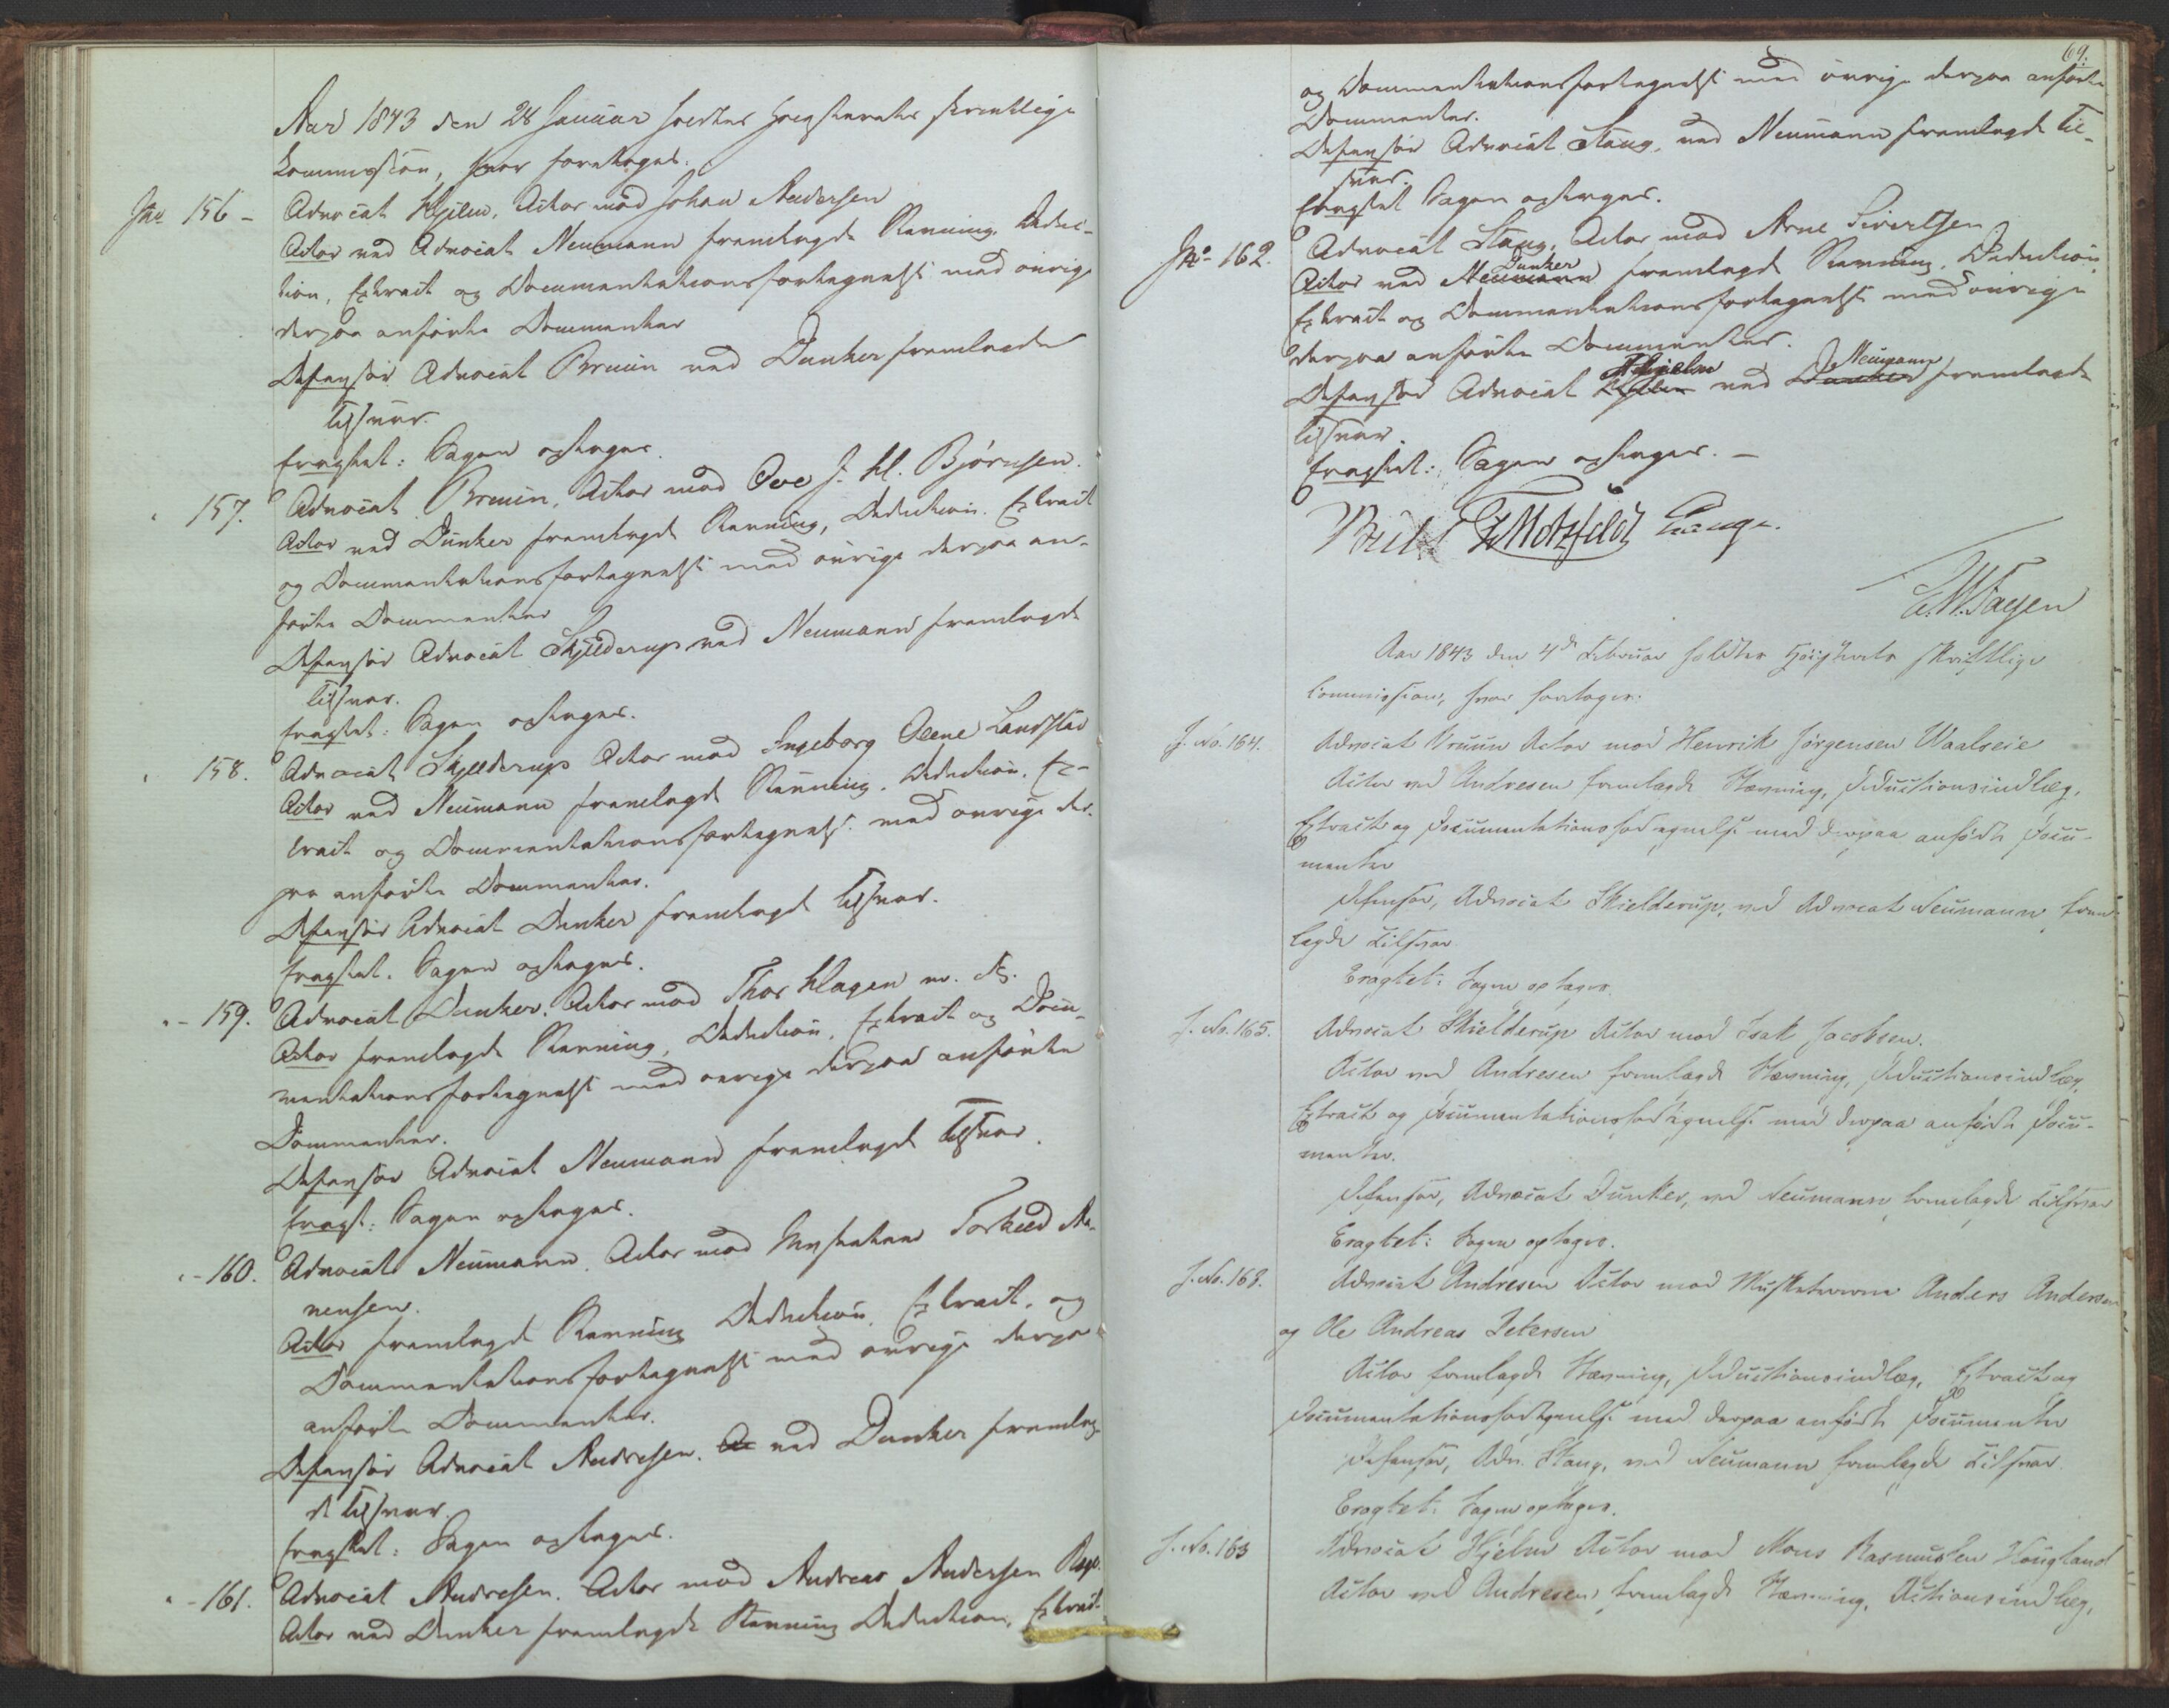 Aar 1843 den 28 Januar holdtes Høiesterets skriftlige
Commission, hvor foretoges:
J No 156 - Advocat Hjelm, Actor mod Johan Andersen
Actor ved Advocat Neumann fremlagde Stævning, Deduc-
tion, Extract og Documentationsfortegnelse med øvrige
derpaa anførte Documenter
Defensor Advocat Bruun ved Dunker fremlagde
Tilsvar.
Eragtet: Sagen optages.
157. Advocat Bruun, Actor mod Ove J. H. Bjørnsen.
Actor ved Dunker fremlagde Stævning, Deduction, Extract
og Documentationsfortegnelse med øvrige derpaa an-
førte Documenter
Defensor Advocat Skjelderup ved Neumann fremlagde
Tilsvar.
Eragtet: Sagen optages.
158. Advocat Skjelderup Actor mod Ingeborg Olene Landstad
Actor ved Neumann fremlagde Stævning, Deduction, Ex-
tract og Documentationsfortegnelse med øvrige der-
paa anførte Documenter.
Defensor Advocat Dunker fremlagde Tilsvar.
Eragtet. Sagen optages.
- 159. Advocat Dunker, Actor mod Thor Hagen m. fl.
Actor fremlagde Stævning, Deduction, Extract og Docu-
mentationsfortegnelse med øvrige derpaa anførte
Documenter.
Defensor Advocat Neumann fremlagde Tilsvar.
Eragt: Sagen optages.
- 160. Advocat Neumann, Actor mod Musketeer Torkild
nensen.
Actor fremlagde Stævning Deduction, Extract, og
Documentationsfortegnelse med øvrige derpaa
anførte Documenter.
Defensor Advocat Andresen, ved Dunker fremlag-
de Tilsvar.
Eragtet: Sagen optages.
- 161. Advocat Andresen, Actor mod Andreas Andersen
Actor ved Dunker fremlagde Stævning Deduction, Extract
69.
og Documentationsfortegnelse med øvrige derpaa anførte
Documenter.
Defensor Advocat Stang, ved Neumann fremlagde Til-
svar.
Eragtet Sagen optages.
J No 162. Advocat Stang, Actor mod Arne Sivertsen
Actor ved Neumann Dunker fremlagde Stævning, Deduction
Extract og Documentationsfortegnelse med øvrige
derpaa anførte Documenter.
Defensor Advocat Hjelm ved Dunker Neumann fremlagde
Tilsvar.
Eragtet: Sagen optages. -
Motzfeldt Lange.
Aar 1843 den 4de Februar holdtes Høiesterets skriftlige
Commission, hvor foretoges:
J. No. 164. Advocat Bruun Actor mod Henrik Jørgensen Waalseie
Actor ved Andresen fremlagde Stævning, Deductionsindlæg,
Extract og Documentationsfortegnelse med derpaa anførte Docu-
menter
Defensor, Advocat Skielderup, ved Advocat Neumann frem-
lagde Tilsvar
Eragtet: Sagen optages.
J. No. 165. Advocat Skielderup Actor mod Isak Jacobsen.
Actor ved Andresen fremlagde Stævning, Deductionsindlæg,
Extract og Documentationsfortegnelse med derpaa anførte Docu-
menter.
Defensor, Advocat Dunker, ved Neumann fremlagde Tilsvar
Eragtet: Sagen optages.
J. No. 168. Advocat Andresen Actor mod Musketererne Anders Andersen
og Ole Andreas Petersen
Actor fremlagde Stævning, Deductionsindlæg, Extract og
Documentationsfortegnelse med derpaa anførte Documenter
Defensor, Adv. Stang, ved Neumann fremlagde Tilsvar.
Eragtet: Sagen optages.
J. No. 163 Advocat Hjelm Actor mod Mons Rasmussen Hougland
Actor ved Andresen fremlagde Stævning, Actionsindlæg,